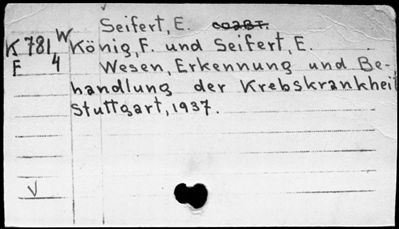 Seifert, E. соавт.
K 781 W König, F. und Seifert, E.
F 4 Wesen, Erkennung und Be-
handlung der Krebskrankheit
Stuttgart, 1937.
V